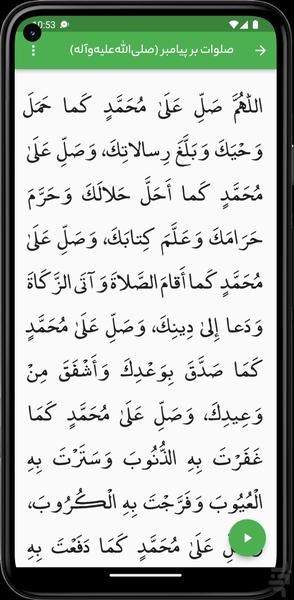 10:53
صلوات بر پیامبر (صلی‌الله‌علیه‌وآله)
اللّٰهُمَّ صَلِّ عَلَىٰ مُحَمَّدٍ كَما حَمَلَ
وَحْيَكَ وَبَلَّغَ رِسالاتِكَ، وَصَلِّ عَلَىٰ
مُحَمَّدٍ كَما أَحَلَّ حَلالَكَ وَحَرَّمَ
حَرَامَكَ وَعَلَّمَ كِتابَكَ، وَصَلِّ عَلَىٰ
مُحَمَّدٍ كَما أَقامَ الصَّلاةَ وَآتَى الزَّكَاةَ
وَدَعا إِلىٰ دِينِكَ، وَصَلِّ عَلَىٰ مُحَمَّدٍ
كَمَا صَدَّقَ بِوَعْدِكَ وَأَشْفَقَ مِنْ
وَعِيدِكَ، وَصَلِّ عَلَىٰ مُحَمَّدٍ كَمَا
غَفَرْتَ بِهِ الذُّنُوبَ وَسَتَرْتَ بِهِ
الْعُيُوبَ وَفَرَّجْتَ بِهِ الْكُرُوبَ،
عَلَىٰ مُحَمَّدٍ كَمَا دَفَعْتَ بِهِ